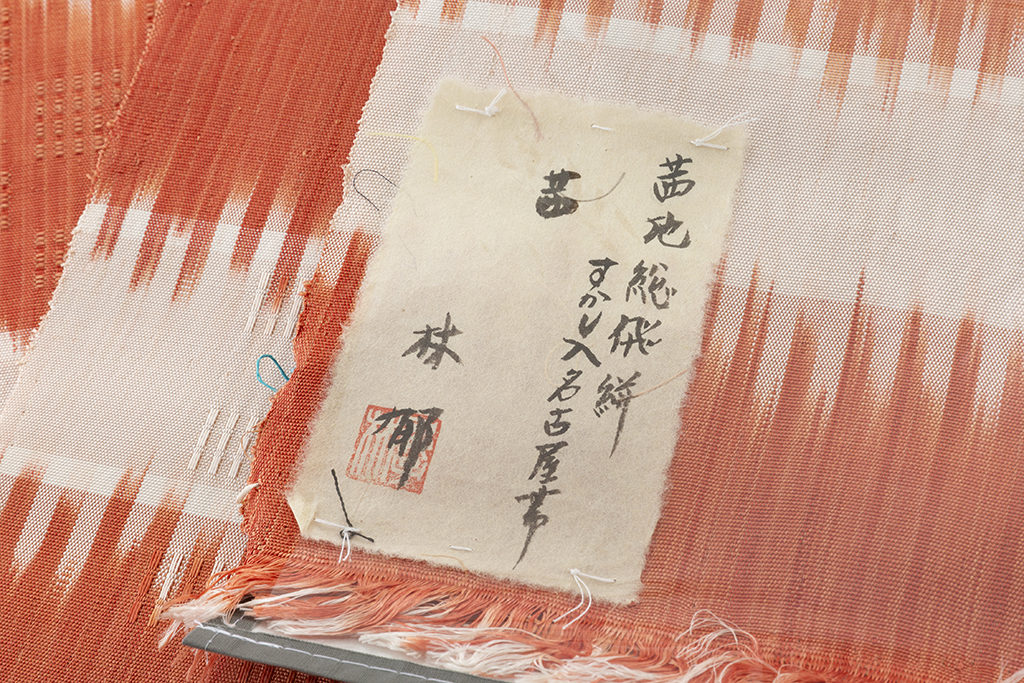 茜地総飛絣
すかし入名古屋帯
茜
林郁